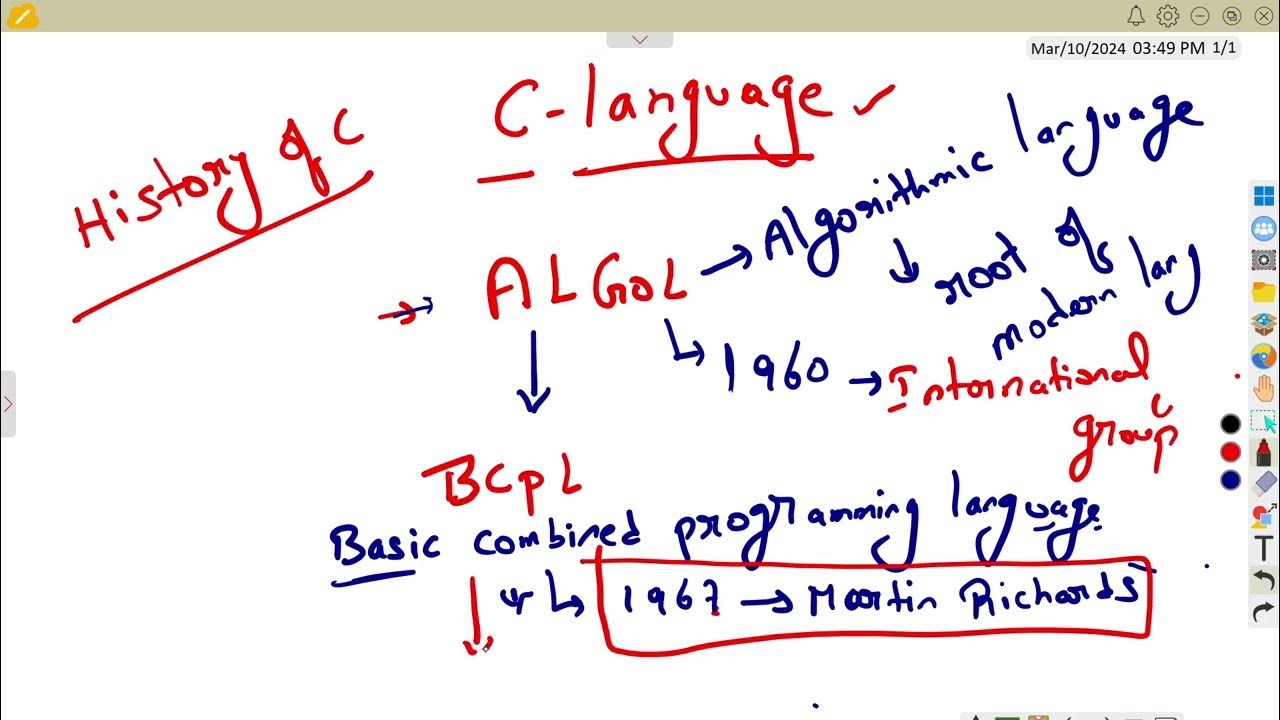 Mar/10/2024 03:49 PM 1/1
C-language
History of C
ALGOL → Algorithmic language
root of
modern lang
1960 → International
group
BCPL
Basic combined programming language
1967 → Martin Richards
T